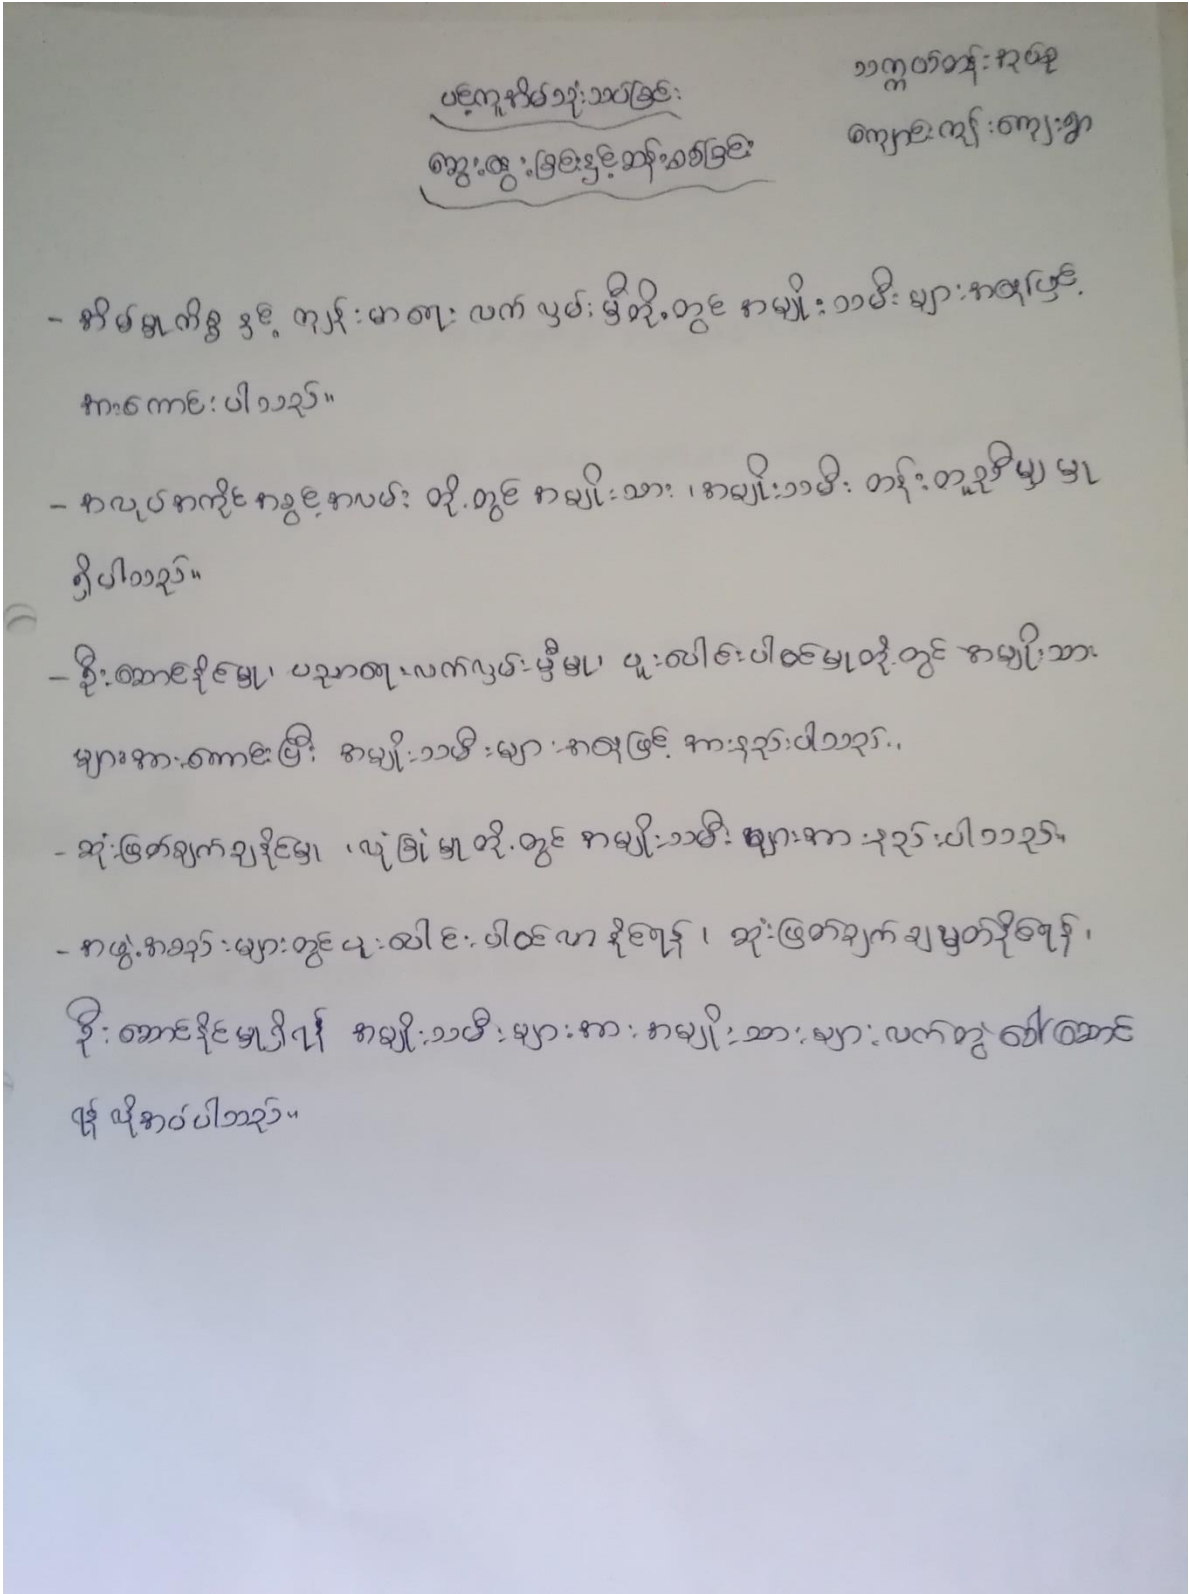 သက္ကယ်တန်းအုပ်စု
ကျောင်းကုန်းကျေးရွာ
ပင့်ကူအိမ်သုံးသပ်ခြင်း
ဆွေးနွေးခြင်းနှင့်ဆန်းစစ်ခြင်း
- အိမ်မှုကိစ္စ နှင့် ကျန်းမာရေး လက်လှမ်းမှီတို့တွင် အမျိုးသမီးများအနေဖြင့်
အားကောင်းပါသည်။
- အလုပ်အကိုင်အခွင့်အလမ်း တို့တွင် အမျိုးသား ၊အမျိုးသမီး တန်းတူညီမျှမှု
ရှိပါသည်။
- ဦးဆောင်နိုင်မှု၊ ပညာရေးလက်လှမ်းမှီမှု၊ ပူးပေါင်းပါဝင်မှုတို့တွင် အမျိုးသား
များအားကောင်းပြီး အမျိုးသမီးများအနေဖြင့် အားနည်းပါသည်။
- ဆုံးဖြတ်ချက်ချနိုင်မှု ၊လုံခြုံမှုတို့တွင် အမျိုးသမီး များအားနည်းပါသည်။
- အဖွဲ့အစည်းများတွင်ပူးပေါင်းပါဝင်လာနိုင်ရန်၊ ဆုံးဖြတ်ချက်ချမှတ်နိုင်ရန်၊
ဦးဆောင်နိုင်မှုရှိရန် အမျိုးသမီးများအား အမျိုးသားများလက်တွဲခေါ်ဆောင်
ရန် လိုအပ်ပါသည်။